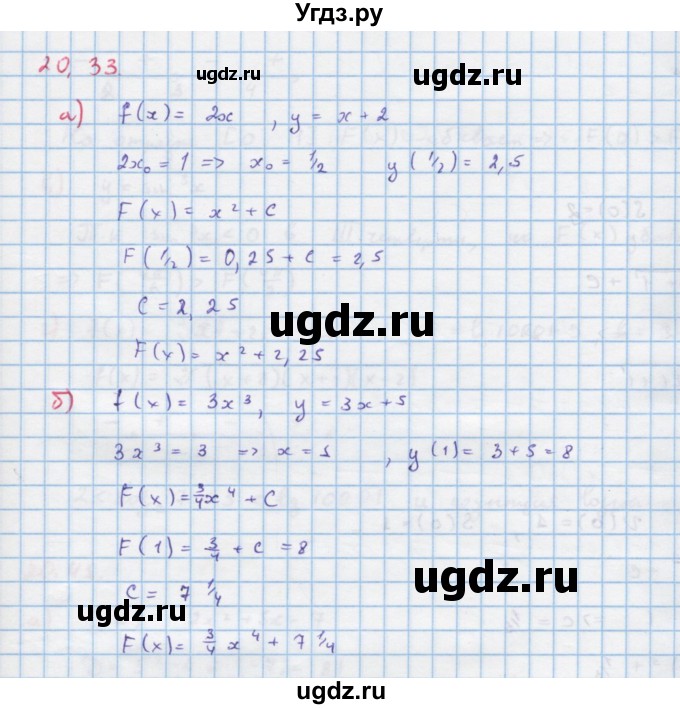 Угдз.ру
20,33
ugdz.ru ugdz.ru
а) f(x) = 2x , y = x + 2
2x₀ = 1 => x₀ = 1/2 y (1/2) = 2,5
F(x) = x² + C
F(1/2) = 0,25 + C = 2,5
C = 2,25
ugdz.ru
F(x) = x² + 2,25
б) f(x) = 3x³, y = 3x + 5
3x³ = 3 => x = 1 , y(1) = 3 + 5 = 8
F(x) = 3/4 x⁴ + C
F(1) = 3/4 + C = 8
ugdz.ru
C = 7 1/4
ugdz.ru
F(x) = 3/4 x⁴ + 7 1/4
ugdz.ru